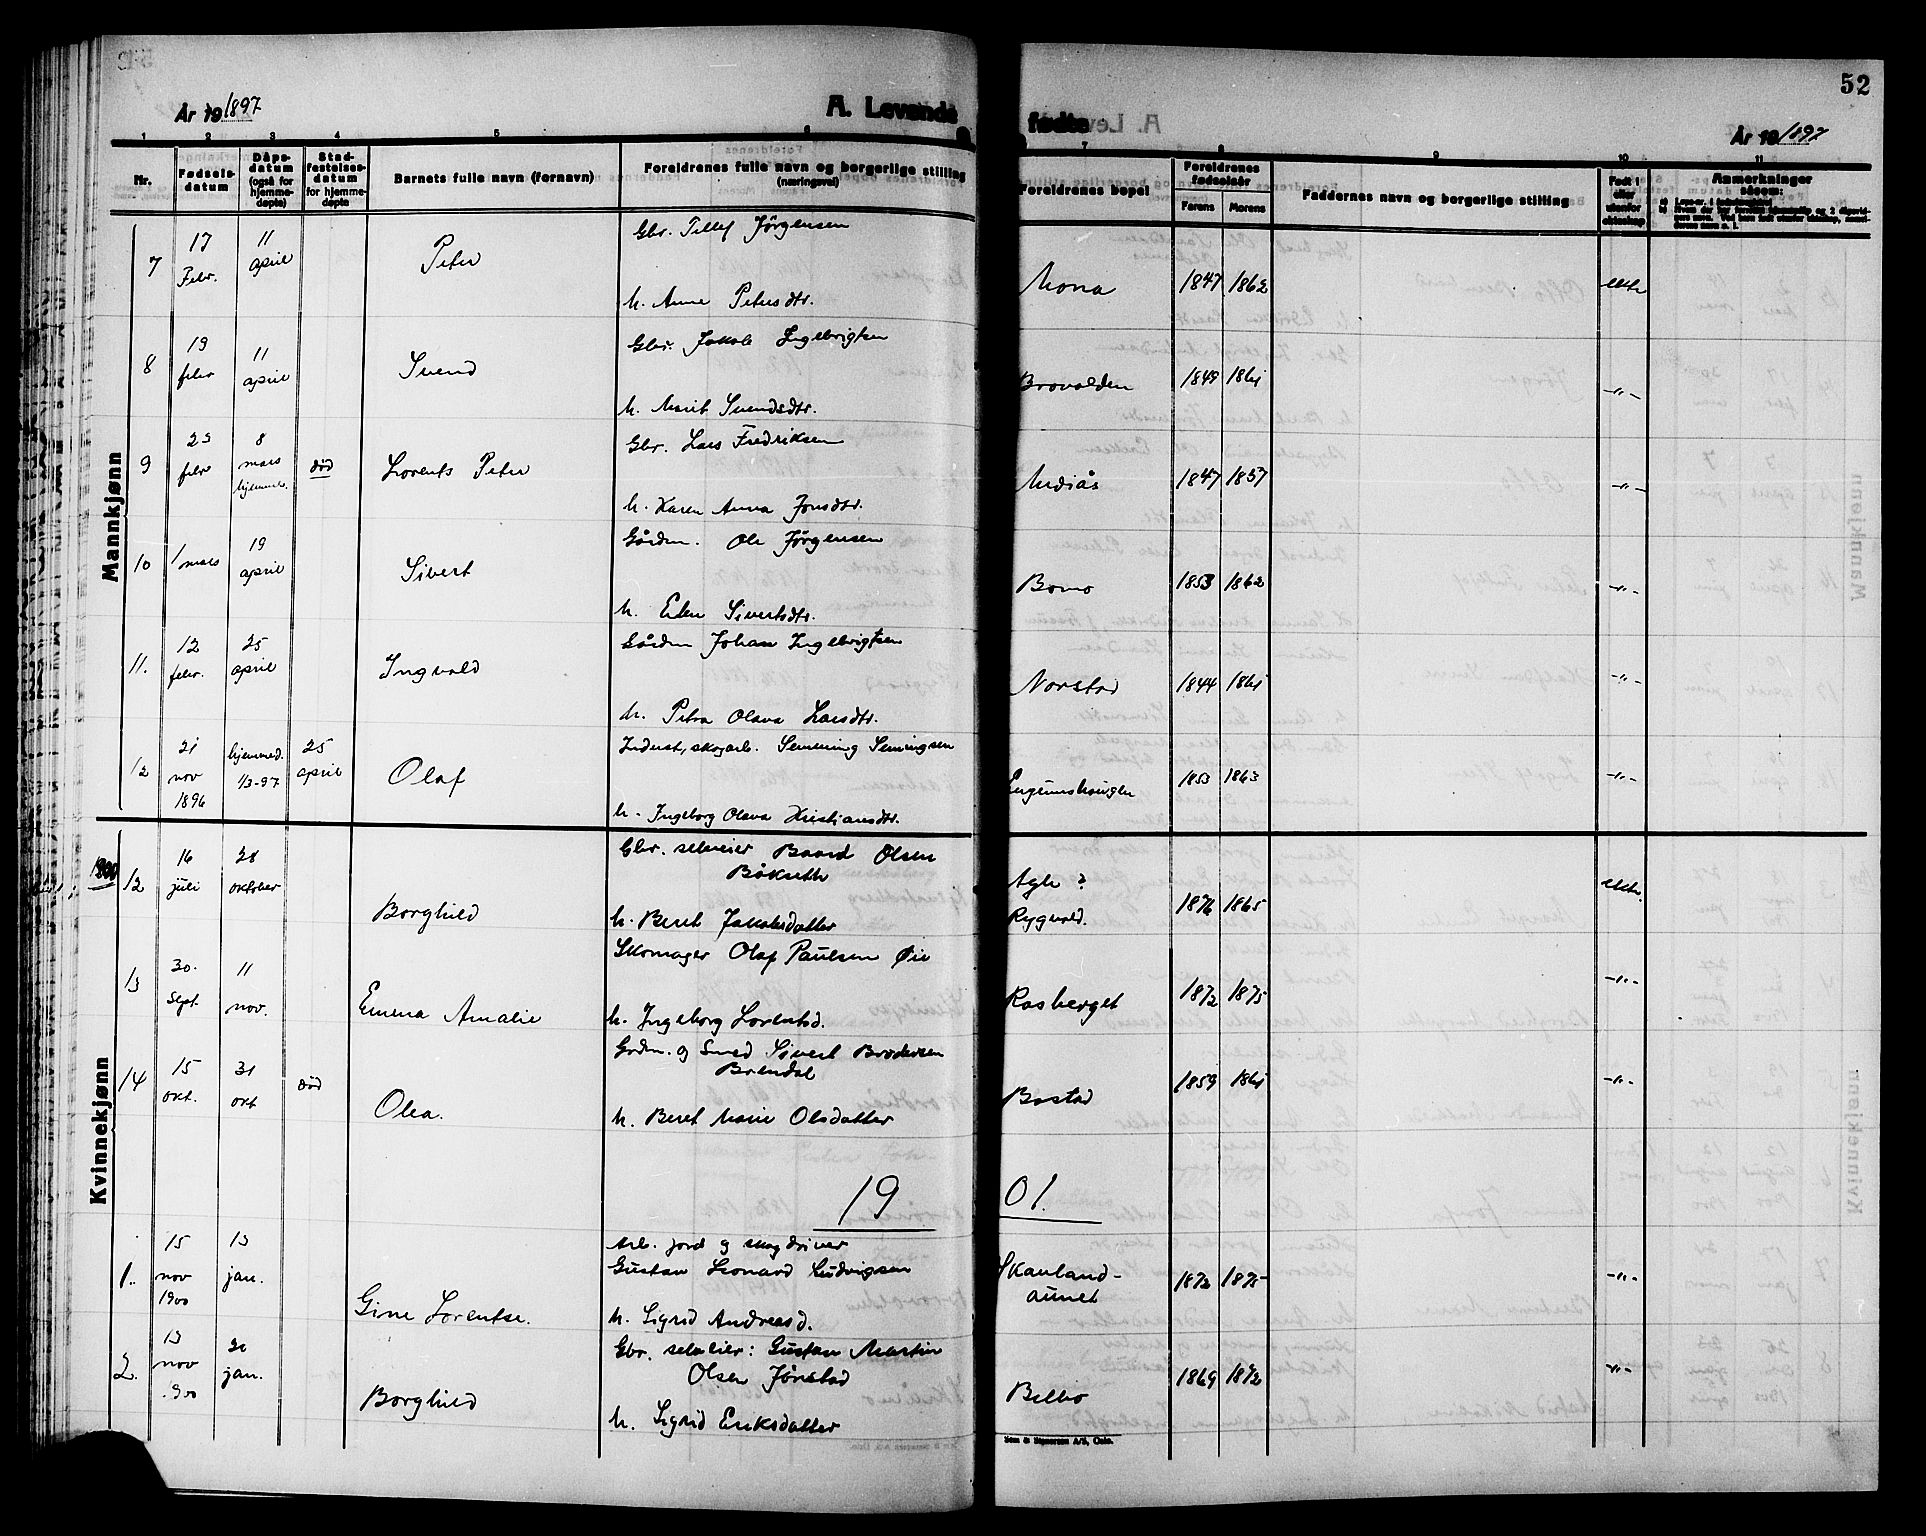 52
År 19 1897
A. Levende fødte
År 19 1897
1 2 3 4 5 6 7 8 9 10 11
Nr.
Fødsels-datum
Dåps-datum (også for hjemme-døpte)
Stad-festelses-datum for hjemme-døpte
Barnets fulle navn (fornavn)
Foreldrenes fulle navn og borgerlige stilling (næringsvei)
Foreldrenes bopel
Foreldrenes fødselsår
Farens Morens
Faddernes navn og borgerlige stilling
Født i eller utenfor ekteskap
Anmerkninger såsom:
Mannkjønn
Gbr. Tillef Jørgensen
7 17 Febr. 11 april Peter Mona 1847 1862 ekte
h. Anne Petersdtr.
Gbr. Jakob Ingebrigtsen
8 19 febr 11 april Svend Brovolden 1849 1861 -"-
h. Marit Svendsdtr.
Gbr. Lars Fredriksen
9 23 febr 8 mars hjemme. død Lorents Peter Mediås 1847 1857 -"-
h. Karen Anna Jonsdtr.
Gårdm. Ole Jørgensen
10 1 mars 19 april Sivert Bomo 1853 1862 -"-
h. Elen Sivertsdtr.
Gårdm Johan Ingebrigtsen
11. 12 febr. 25 april Ingvald Norstad 1844 1861 -"-
h. Petra Olava Larsdtr.
Inderst, skogarb. Semming Semingsen
12 21 nov 1896 hjemmed. 1/3-97 25 april Olaf 1853 1863 -"-
h. Ingeborg Olava Kristiansdtr.
Kvinnekjønn
1900
Gbr. selveier Baard Olsen Bökseth
12 16 juli 28 oktober Borghild Agle? Rygvold. 1876 1865 ekte.
h. Beret Jakobsdatter
Skomager Olaf Paulsen Øie
13 30. sept. 11 nov. Emma Amalie Rosberget 1872 1875 -"-
h. Ingeborg Lorentsd.
Grdm. og Smed Sivert Brodersen Brendal
14 15 okt. 31 okt død Olea. Bostad 1859 1861 -"-
h. Beret Marie Olsdatter
19 01.
Arb. jord og skogdriver
Gustav Leonard Ludvigsen
1.. 15 nov 1900 13 jan. Gine Lorentse. Skavland-aunet 1872 1875 -"-
h. Sigrid Andreasd.
Gbr. selveier: Gustav Martin Olsen Jönstad
2. 13 nov 900 20 jan. Borghild Belbo 1869 1872 -"-
h. Sigrid Eriksdatter
Sem & Stenersen A/S, Oslo.